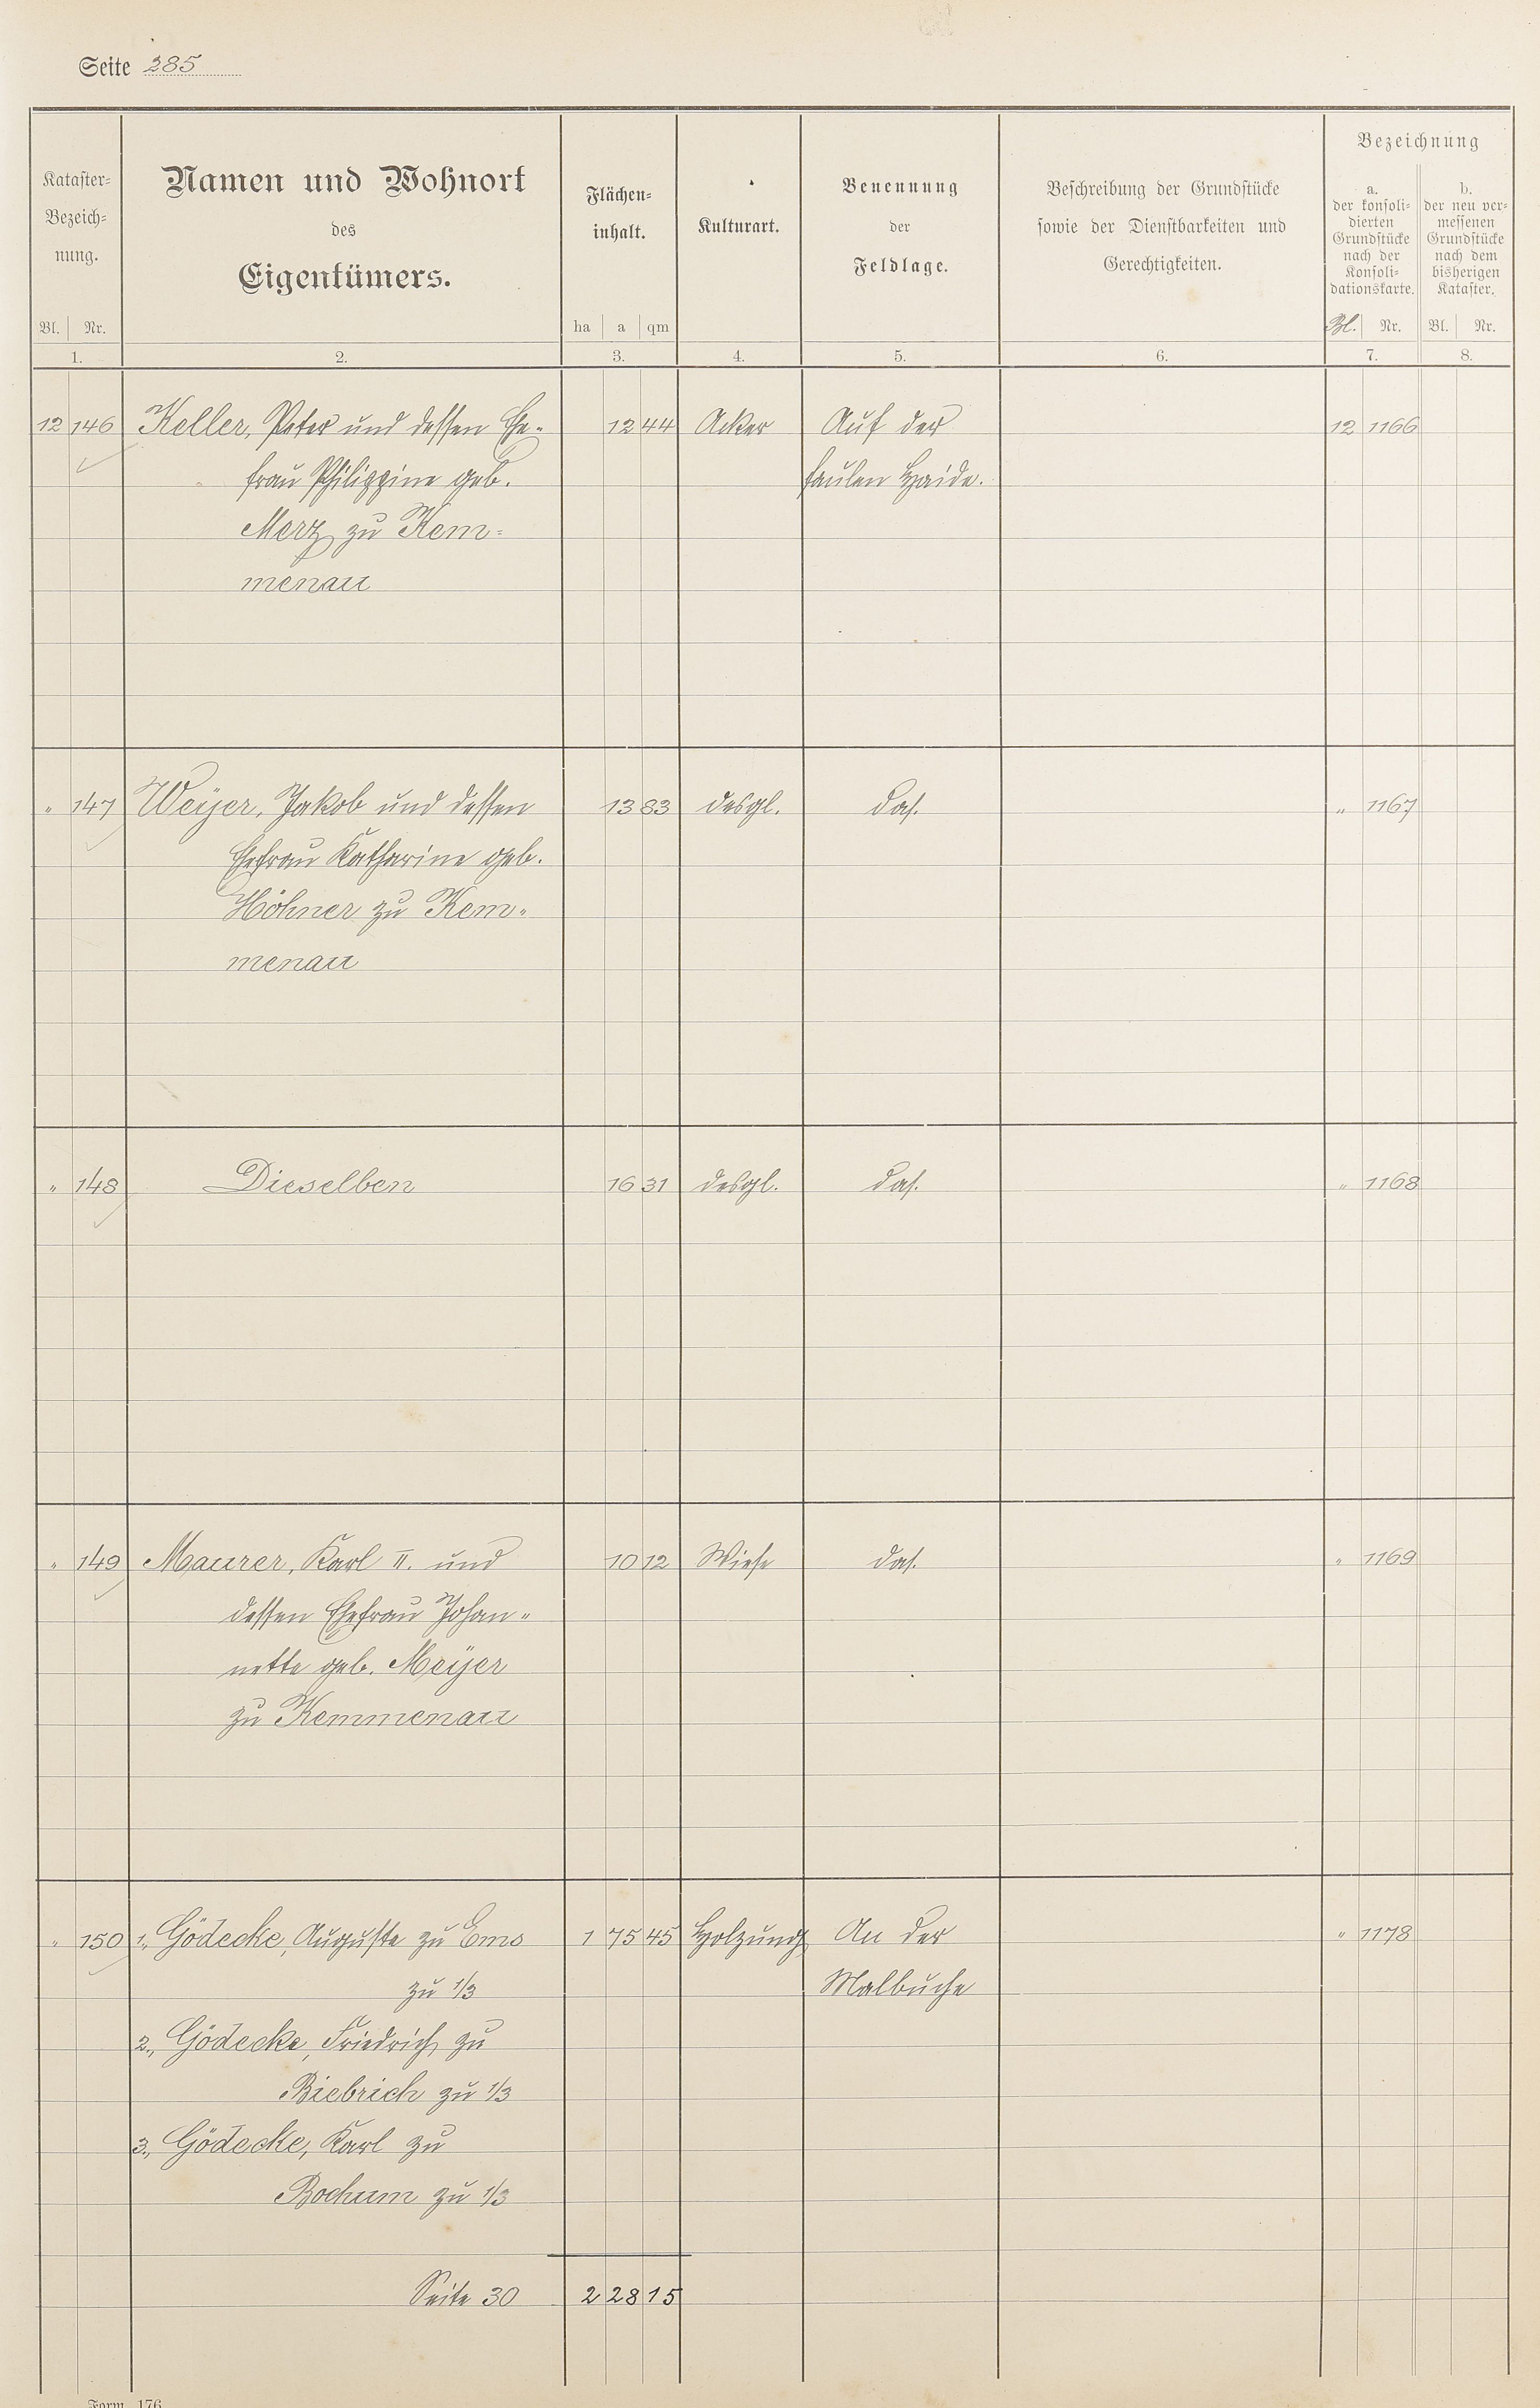 Seite 285
Kataster-
Bezeich-
nung.
Bl. Nr.
1.
Namen und Wohnort
des
Eigentümers.
2.
Flächen-
inhalt.
ha a qm
3.
Kulturart.
4.
Benennung
der
Feldlage.
5.
Beschreibung der Grundstücke
sowie der Dienstbarkeiten und
Gerechtigkeiten.
6.
Bezeichnung
a.
der konsoli-
dierten
Grundstücke
nach der
Konsoli-
dationskarte.
Bl. Nr.
7.
b.
der neu ver-
messenen
Grundstücke
nach dem
bisherigen
Kataster.
Bl. Nr.
8.
12 146 Keller, Peter und dessen Ehe- 12 44 Acker Auf der 12 1166
frau Philippine geb. faulen Haide.
Merz zu Kem-
menau
" 147 Weyer, Jakob und dessen 13 83 desgl. das. " 1167
Ehefrau Katharine geb.
Höhner zu Kem-
menau
" 148 Dieselben 16 31 desgl. das. " 1168
" 149 Maurer, Karl II. und 10 12 Wiese das. " 1169
dessen Ehefrau Johan-
nette geb. Meyer
zu Kemmenau
" 150 1., Gödecke, Auguste zu Ems 1 75 45 Holzung An der " 1178
zu 1/3 Malbuche
2., Gödecke, Friedrich zu
Biebrich zu 1/3
3., Gödecke, Karl zu
Bochum zu 1/3
Seite 30 2 28 15
Form. 176